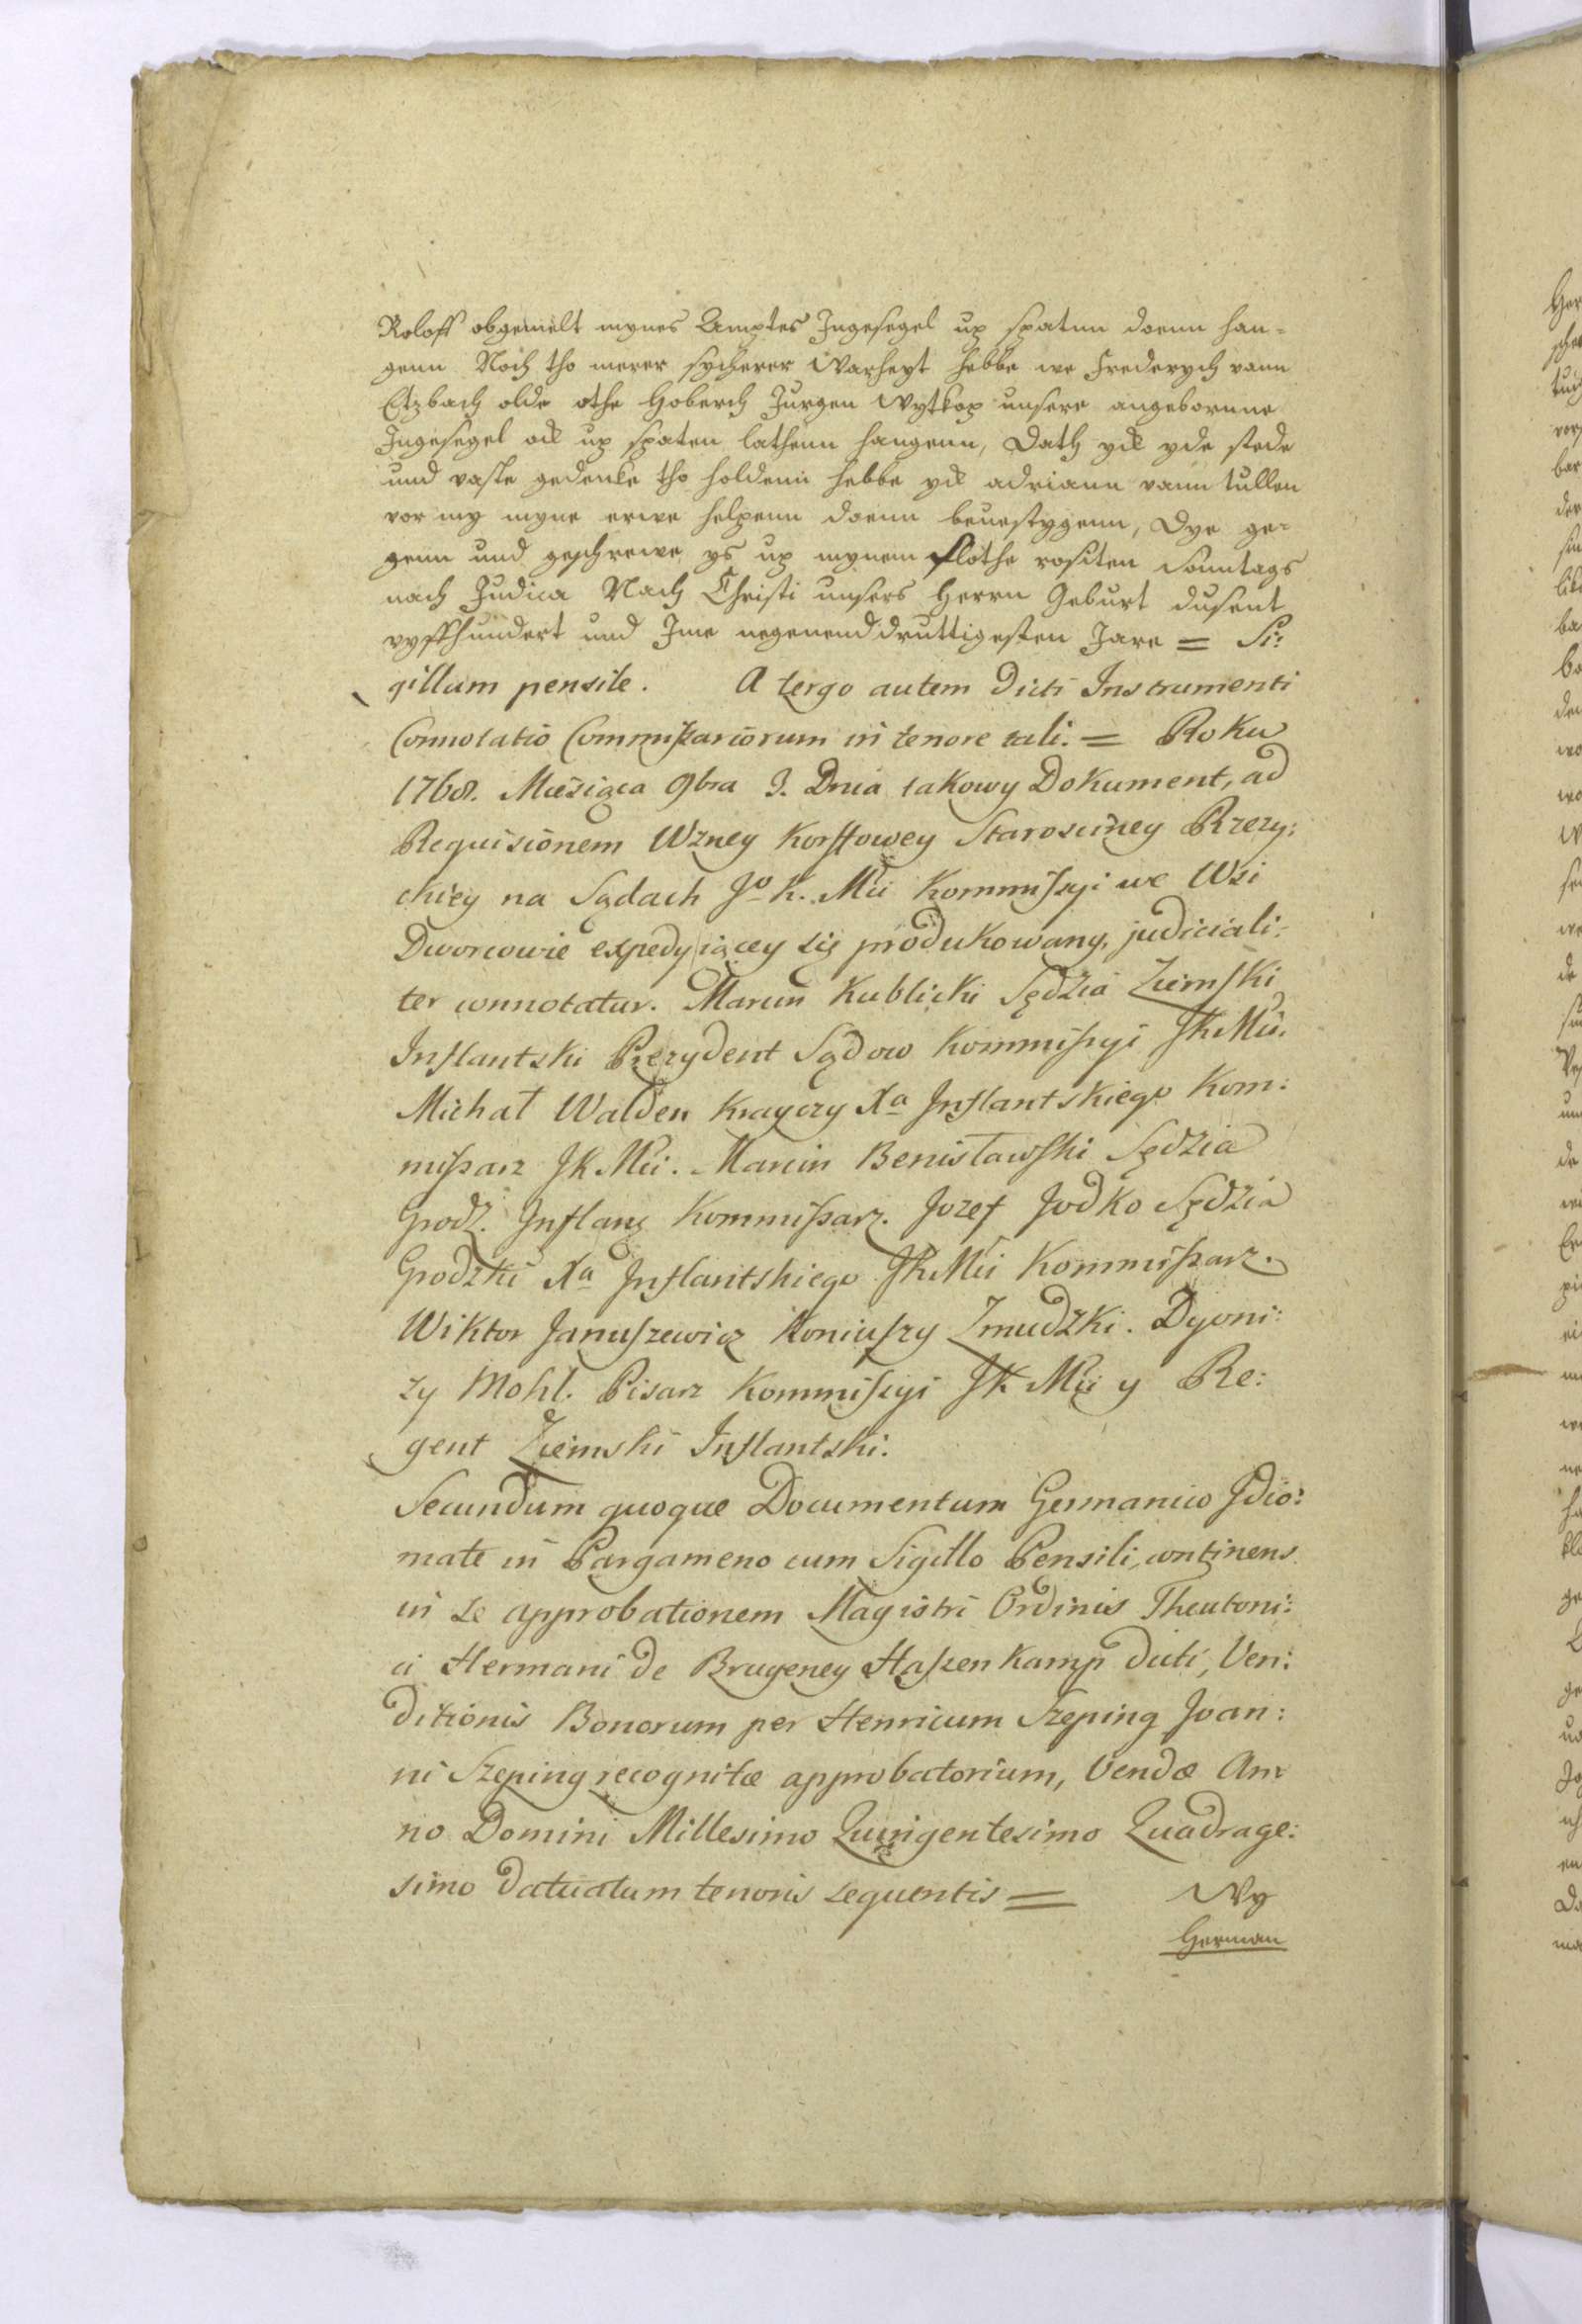 Roloff obgemelt mynes Amptes Ingesegel up spatenn doenn han=
genn Noch tho merer sycherer Warheyt hebbe we Frederych vann
Etzbach olde othe Hoberch Jurgen Wytkop unsere angebornne
Ingesegel ock up spaten lathenn hangenn, Dath yck yde stede
und vaste gedencke tho holdenn hebbe yck adriann vann tullen
vor my myne erve helpenn doenn bevestygenn, Dye ge=
genn und geschreve ys up mynem slothe rositen Sonntags
nach Judica Nach Christi unsers Herrn Geburt dusent
vyffhundert und Jme negenenddruttigesten Jare = Si:
gillum pensile. A tergo autem dicti Instrumenti
Connotatio Commißariorum in tenore tali. = Roku
1768. Miesiąca 9bra 3. Dnia takowy Dokument, ad
Requisionem Wzney Korffowey Starosciney Rzezy:
ckiey na Sądach Jo K. Mci Kommißyi we Wsi
Dworcowie expedyiącey się produkowany, judiciali:
ter connotatur. Marcin Kublicki Sędzia Ziemski
Inflantski Prezydent Sądow Kommißyi JKMci.
Michał Walden Krayczy Xa Inflantskiego Kom:
mißarz JKMci. Marcin Benisławski Sędzia
Grodz. Inflang Kommißarz. Jozef Jodko Sędzia
Grodzki Xa Inflantskiego JKMci Kommißarz.
Wiktor Januszewicz Koniuszy Zmudzki. Dyoni:
zy Mohl. Pisarz Kommißyi JK Mci y Re:
gent Ziemski Inflantski.
Secundum quoque Documentum Germanico Idio:
mate in Pargameno cum Sigillo Pensili, continens
in se approbationem Magistri Ordinis Theutoni:
ci Hermani de Brugeney Haßenkamp dicti, Ven:
ditionis Bonorum per Henricum Szeping Joan:
ni Szeping recognitæ approbatorium, Vendæ An:
no Domini Millesimo Quingentesimo Quadrage:
simo datuatum tenoris sequentis = Wy
Herman